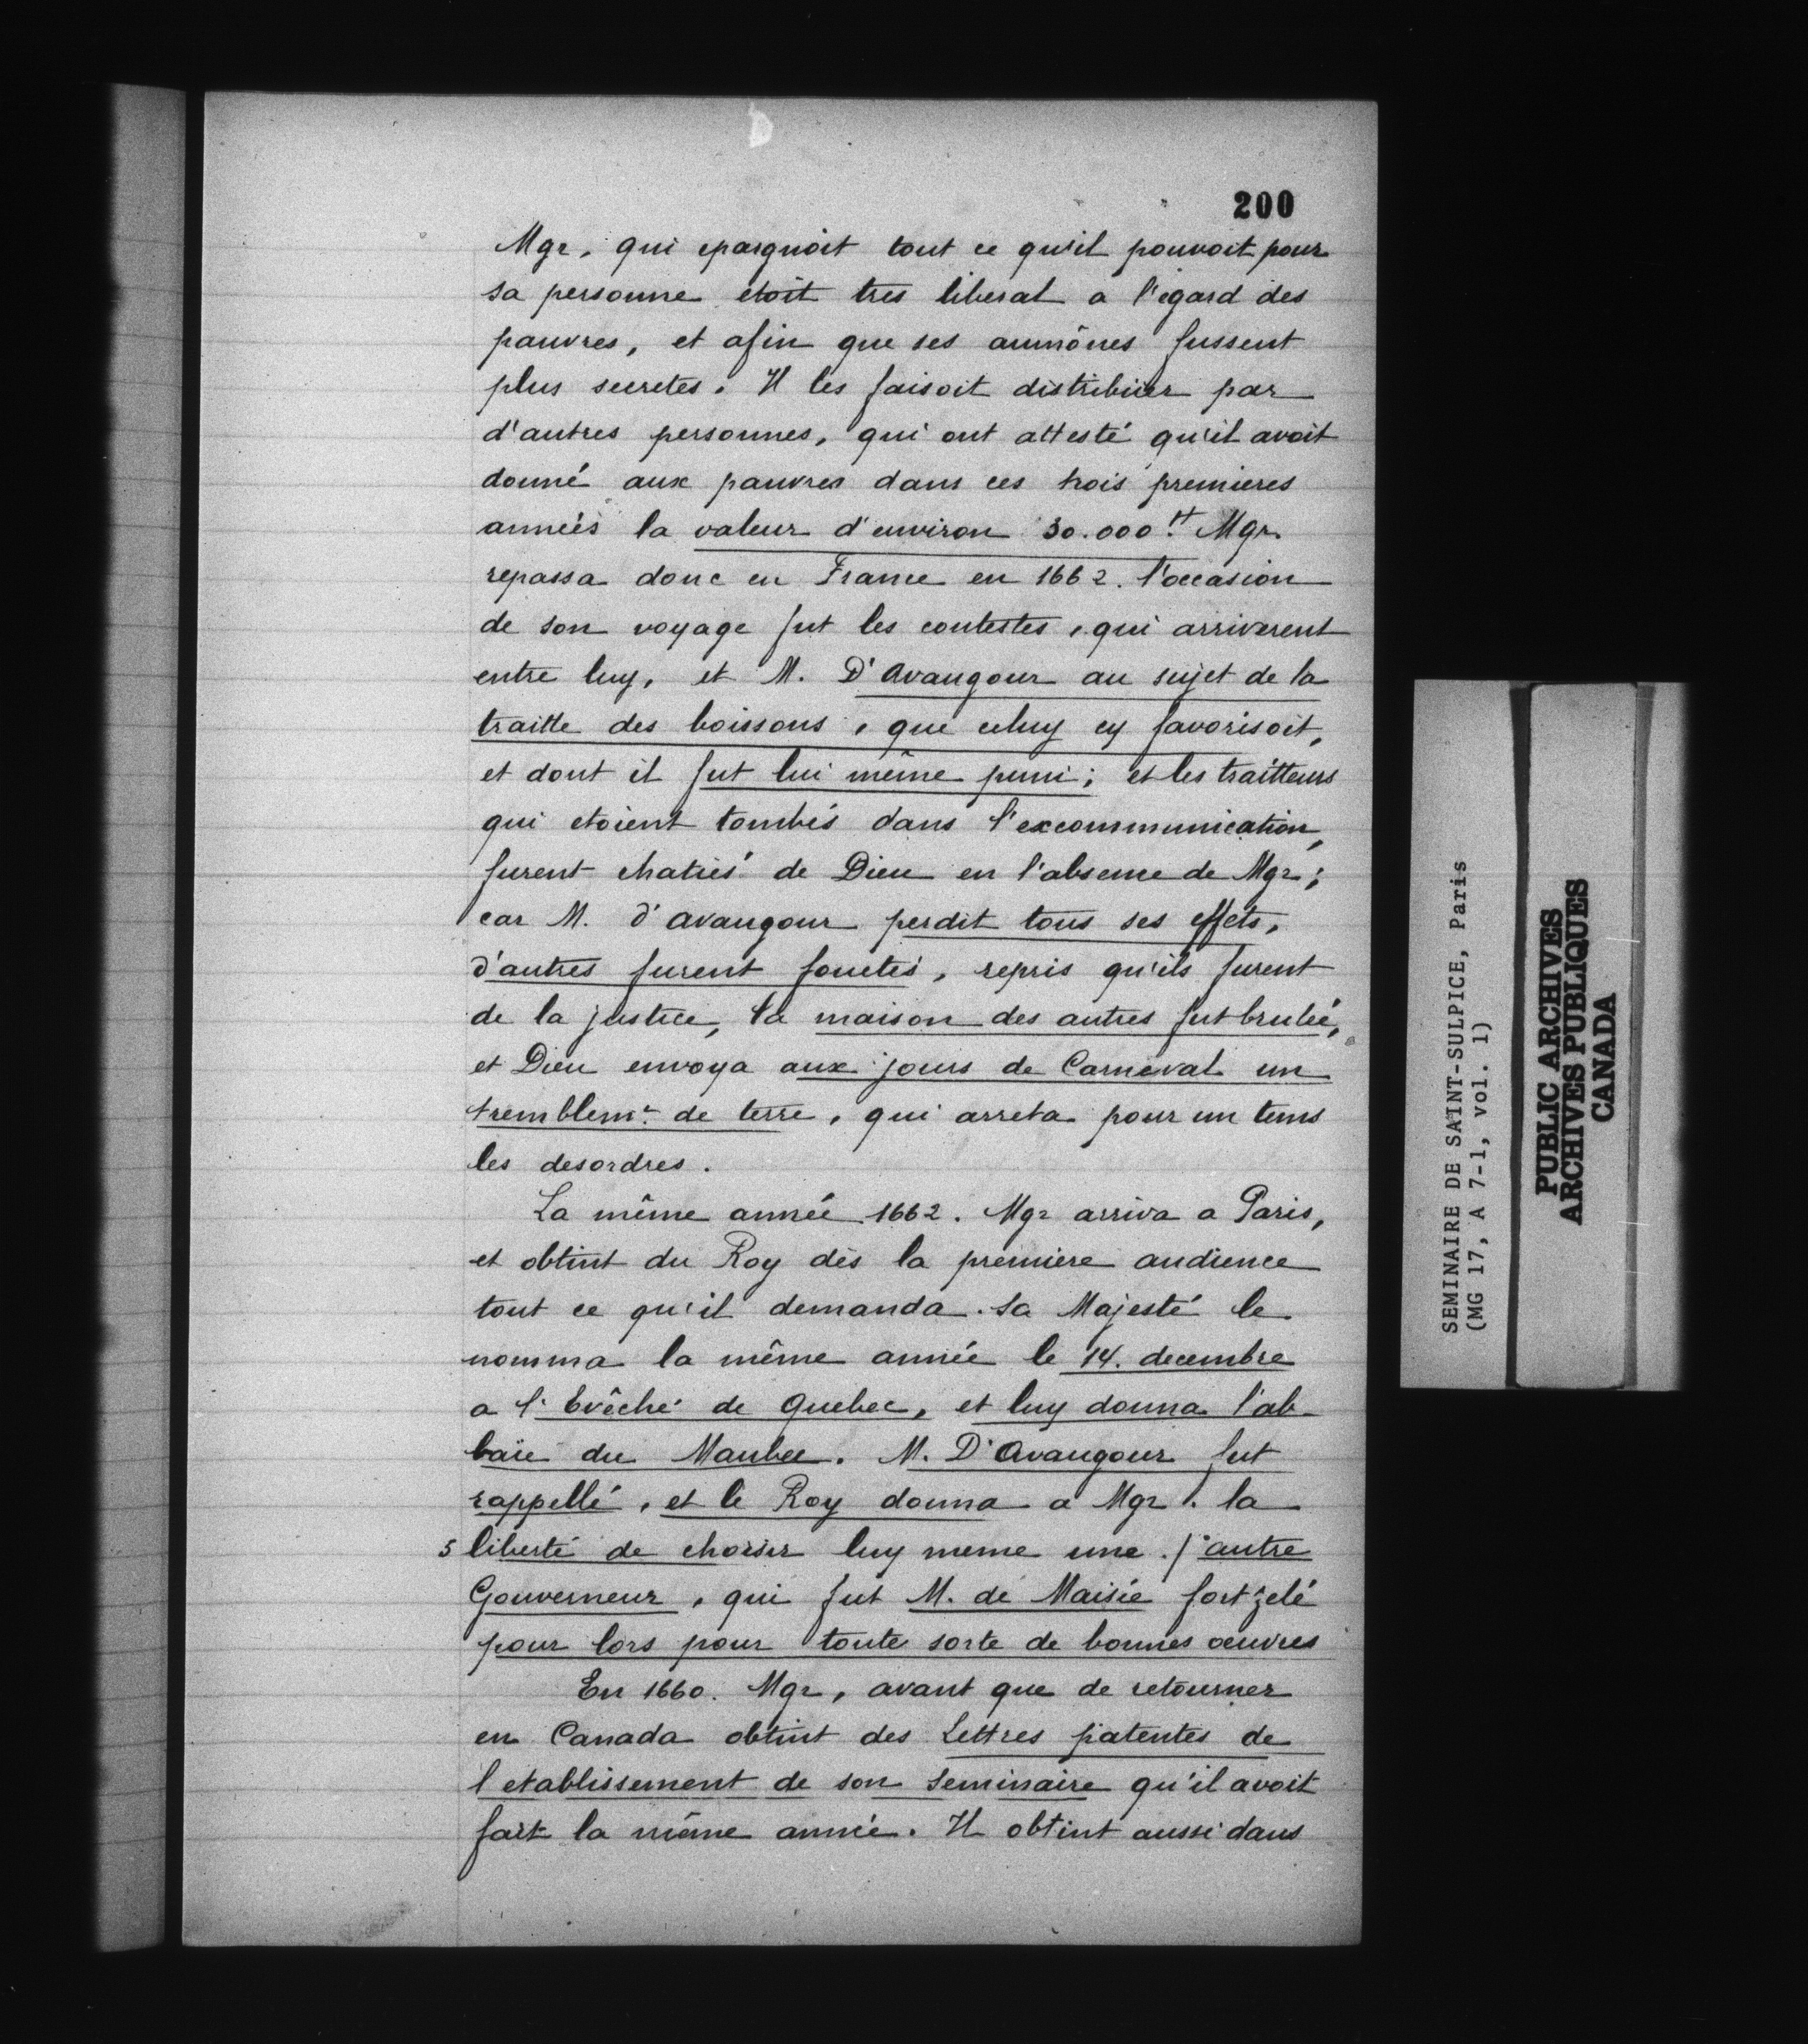 200
Mgr, qui epargnoit tout ce qu'il pouvoit pour
sa personne etoit tres liberal a l'egard des
pauvres, et afin que ses aumônes fussent
plus secretes. Il les faisoit distribuer par
d'autres personnes, qui ont attesté qu'il avoit
donné aux pauvres dans ces trois premieres
années la valeur d'environ 30.000.tt Mgr.
repassa donc en France en 1662. l'occasion
de son voyage fut les contestes, qui arriverent
entre luy, et M. D'Avaugour au sujet de la
traitte des boissons, que celuy cy favorisoit,
et dont il fut lui même puni; et les traitteurs
qui etoient tombés dans l'excommunication,
furent chatiés de Dieu en l'absence de Mgr;
car M. d'avaugour perdit tous ses effets,
d'autres furent fouetés, repris qu'ils furent
de la justice, la maison des autres fut brulée,
et Dieu envoya aux jours de Carneval un
tremblemt. de terre, qui arreta pour un tems
les desordres.
La même année 1662. Mgr arriva a Paris,
et obtint du Roy dès la premiere audience
tout ce qu'il demanda. Sa Majesté le
nomma la même année le 14. decembre
a l'Evêché de Quebec, et luy donna l'ab-
baïe du Maubec. M. D'Avaugour fut
rappellé, et le Roy donna a Mgr. la
5 liberté de choisir luy meme une / autre
Gouverneur, qui fut M. de Maisie fort zelé
pour lors pour toute sorte de bonnes oeuvres
En 1660. Mgr, avant que de retourner
en Canada obtint des Lettres patentes de
l'etablissement de son Seminaire qu'il avoit
fait la même année. Il obtint aussi dans
SEMINAIRE DE SAINT-SULPICE, Paris
(MG 17, A 7-1, vol. 1)
PUBLIC ARCHIVES
ARCHIVES PUBLIQUES
CANADA